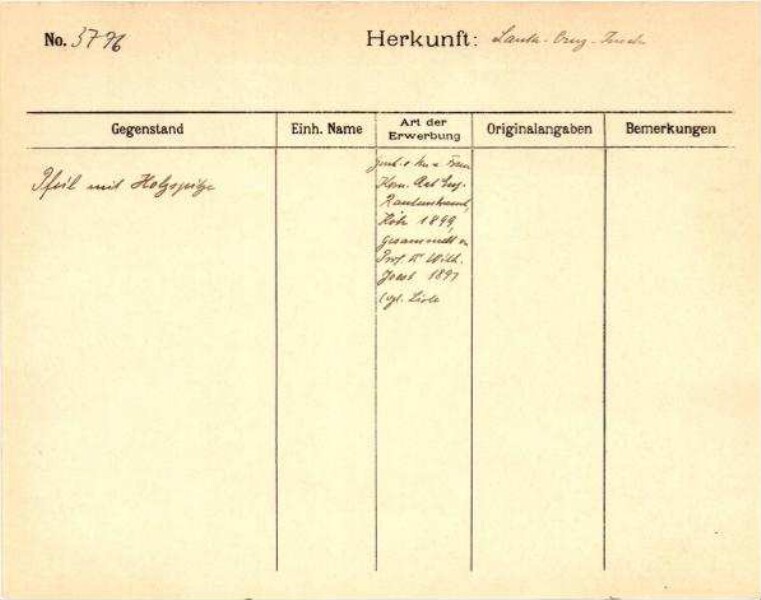 No. 3796 Herkunft: Santa-Cruz-Inseln
Gegenstand Einh. Name Art der Erwerbung Originalangaben Bemerkungen
Pfeil mit Holzspitze
Gesch. v. Frau
Kom. Rat Eug.
Rautenstrauch,
Köln 1899,
gesammelt v.
Prof. Dr. Wilh.
Joest 1897
(vgl. Liste